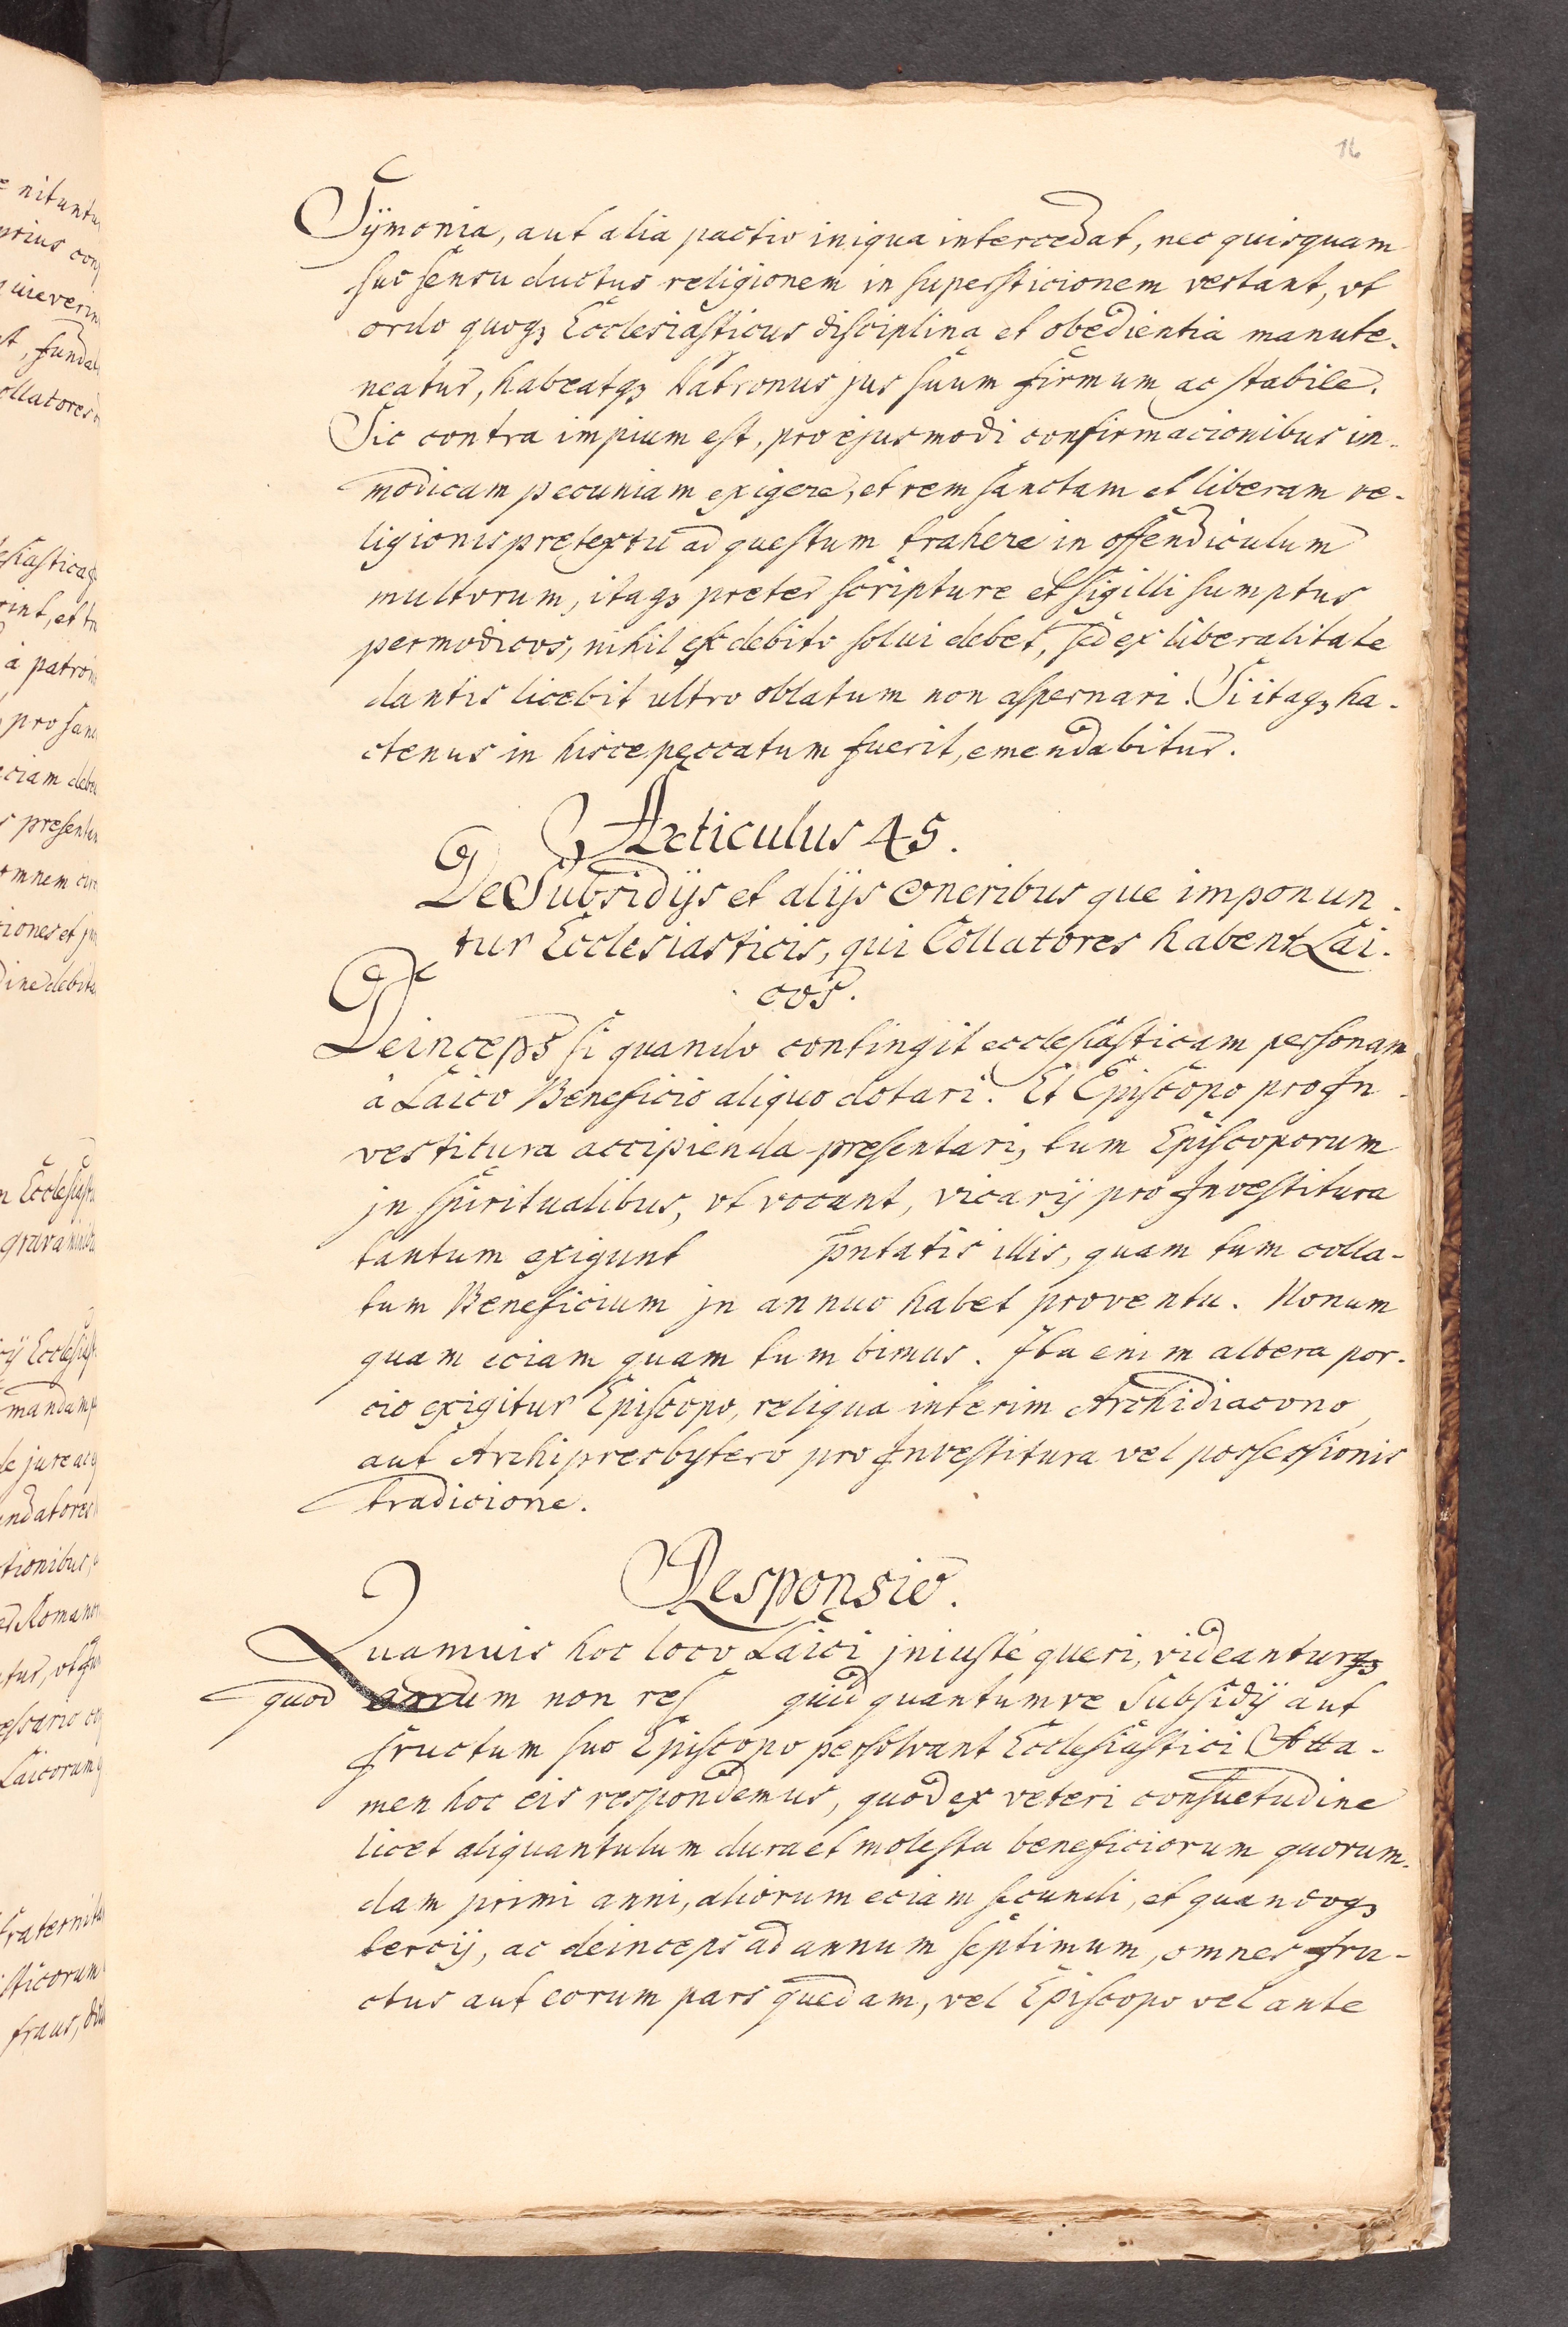 16
Sÿmonia, aut alia pactio iniqua intercedat, nec quisquam
suo sensu ductus religionem in supersticionem vertant, vt
ordo quoqȝ Ecclesiasticus disciplina et obedientia manute-
neatur, habeatqȝ Patronus jus suum firmum ac stabile.
Sic contra impium est, pro ejusmodi confirmacionibus in-
modicam pecuniam exigere, et rem sanctam et liberam re-
ligionis pretextu ad questum trahere in offendiculum
multorum, itaqȝ preter scripture et sigilli sumptus
permodicos, nihil ex debito solui debet, sed ex liberalitate
dantis licebit ultro oblatum non aspernari. Si itaqȝ ha-
ctenus in hisce peccatum fuerit, emendabitur.
Articulus 45.
De Subsidijs et alijs oneribus que imponun-
tur Ecclesiasticis, qui Collatores habent Lai-
cos.
Deinceps si quando contingit ecclesiasticam personam
à Laico Beneficio aliquo dotari. Et Episcopo pro In-
vestitura accipienda presentari, tum Episcoporum
jn spiritualibus, vt vocant, vicarij pro Investitura
tantum exigunt p̄ntatis illis, quam tum colla-
tum Beneficium jn annuo habet proventu. Nonum
quam eciam quam tum bimus. Ita enim altera por-
cio exigitur Episcopo, reliqua interim Archidiacono,
aut Archipresbytero pro Investitura vel possessionis
tradicione.
Responsio.
Quamuis hoc loco Laici jniustè queri, videantur
quod earum non res quid quantumve Subsidij aut
fructum suo Episcopo persolvant Ecclesiastici Atta-
men hoc eis respondemus, quod ex veteri consuetudine
licet aliquantulum dura et molesta beneficiorum quorum-
dam primi anni, aliorum eciam secundi, et quandoqȝ
tercij, ac deinceps ad annum septimum, omnes fru-
ctus aut eorum pars quedam, vel Episcopo vel ante